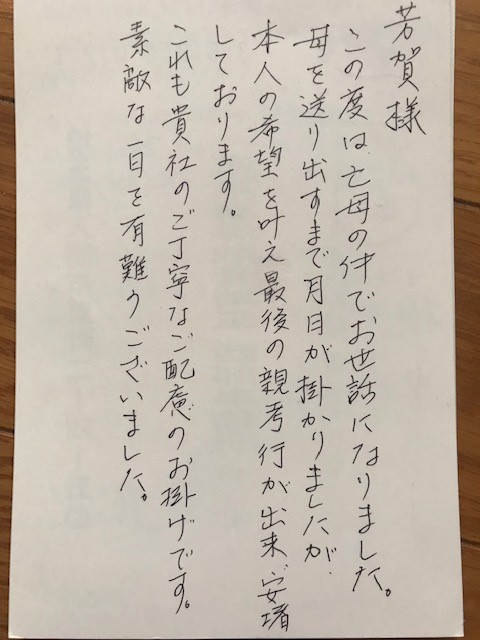 芳賀様
この度は、亡母の件でお世話になりました。
母を送り出すまで月日が掛かりましたが、
本人の希望を叶え最後の親考行が出来、安堵
しております。
これも貴社のご丁寧なご配慮のお掛げです。
素敵な一日を有難うございました。